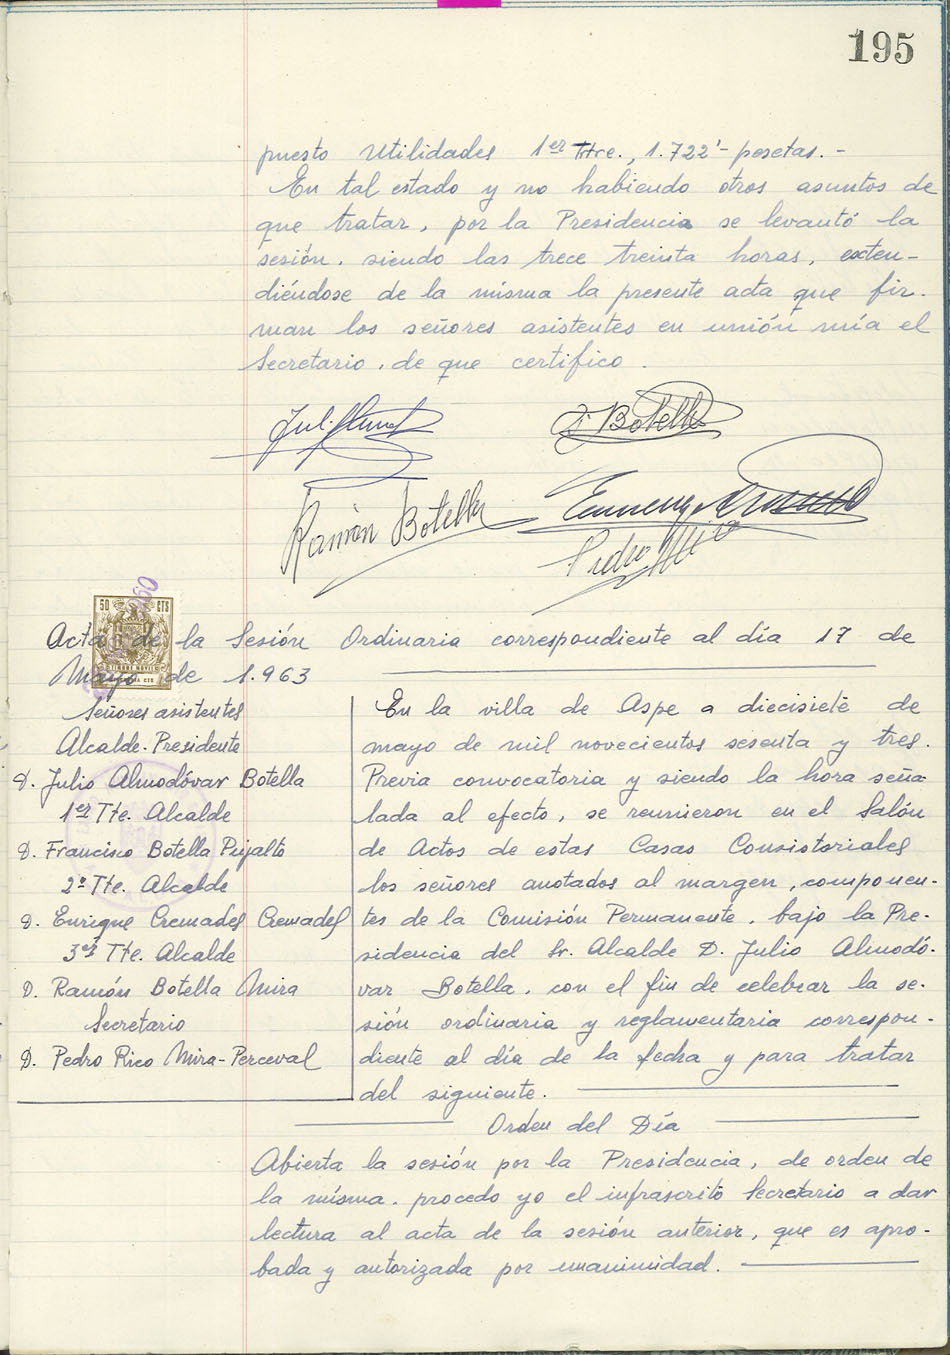 195
puesto Utilidades 1er Ttre., 1.722'- pesetas.-
En tal estado y no habiendo otros asuntos de
que tratar, por la Presidencia se levantó la
sesión, siendo las trece treinta horas, exten-
diéndose de la misma la presente acta que fir-
man los señores asistentes en unión mía el
Secretario, de que certifico.
Botella
Ramón Botella
Pedro
50 CTS
Acta de la Sesión Ordinaria correspondiente al día 17 de
Mayo de 1.963
Señores asistentes
Alcalde-Presidente
D. Julio Almodóvar Botella
1er Tte. Alcalde
D. Francisco Botella Pujalto
2º Tte. Alcalde
D. Enrique Cremades Cremades
3er Tte. Alcalde
D. Ramón Botella Mira
Secretario
D. Pedro Rico Mira-Perceval
En la villa de Aspe a diecisiete de
mayo de mil novecientos sesenta y tres.
Previa convocatoria y siendo la hora seña-
lada al efecto, se reunieron en el Salón
de Actos de estas Casas Consistoriales
los señores anotados al margen, componen-
tes de la Comisión Permanente, bajo la Pre-
sidencia del Sr. Alcalde D. Julio Almodó-
var Botella, con el fin de celebrar la se-
sión ordinaria y reglamentaria correspon-
diente al día de la fecha y para tratar
del siguiente.
Orden del Día
Abierta la sesión por la Presidencia, de orden de
la misma, procedo yo el infrascrito Secretario a dar
lectura al acta de la sesión anterior, que es apro-
bada y autorizada por unanimidad.